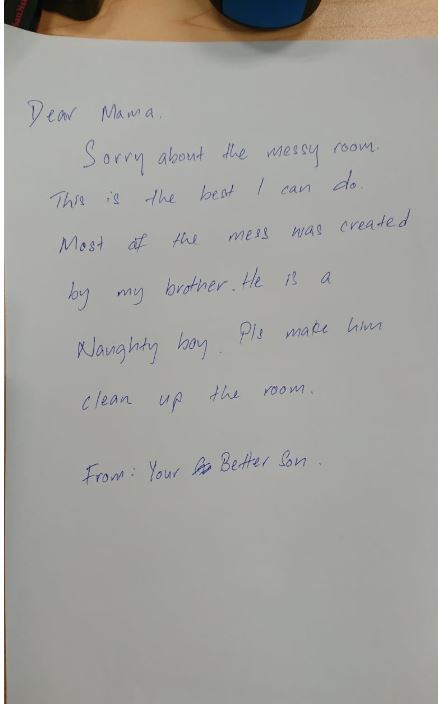 Dear Mama.
Sorry about the messy room.
This is the best I can do.
Most of the mess was created
by my brother. He is a
Naughty boy. Pls make him
clean up the room.
From: Your Better Son.